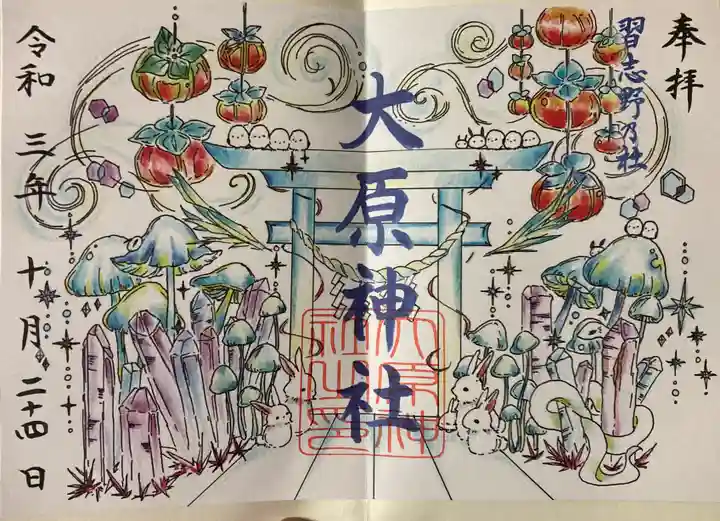 奉拝
習志野乃社
大原神社
大原神社之印
令和三年十月二十四日